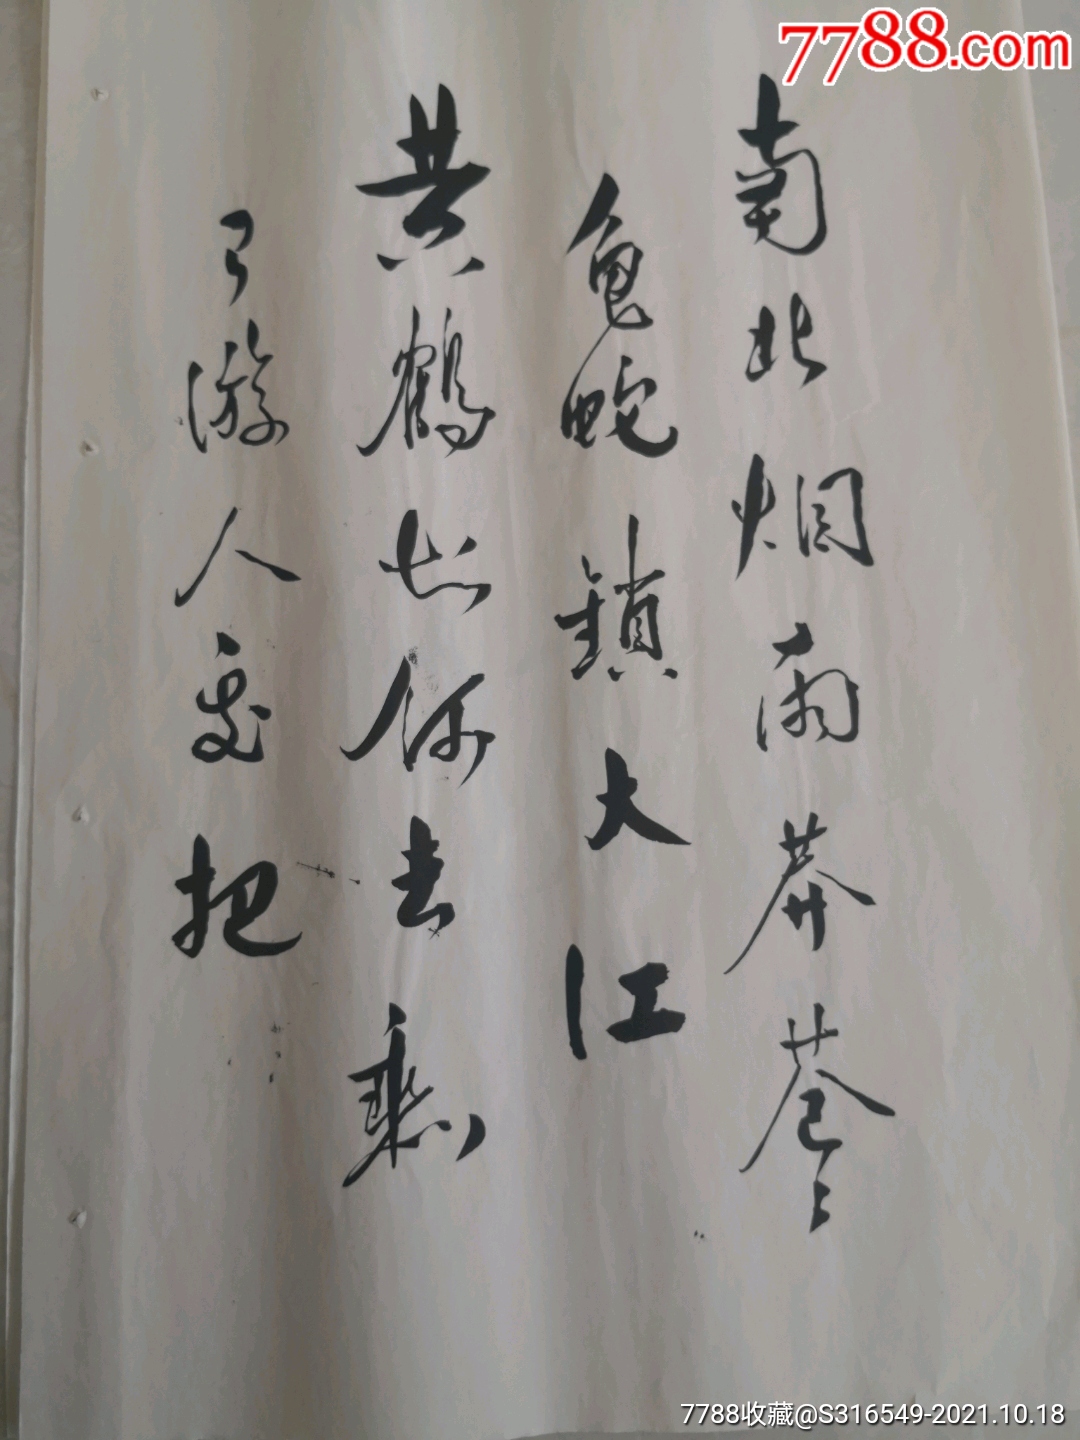 7788.com
南北烟雨莽苍々
龟蛇鎖大江
黄鹤知何去剩
有游人处把
7788收藏@S316549-2021.10.18